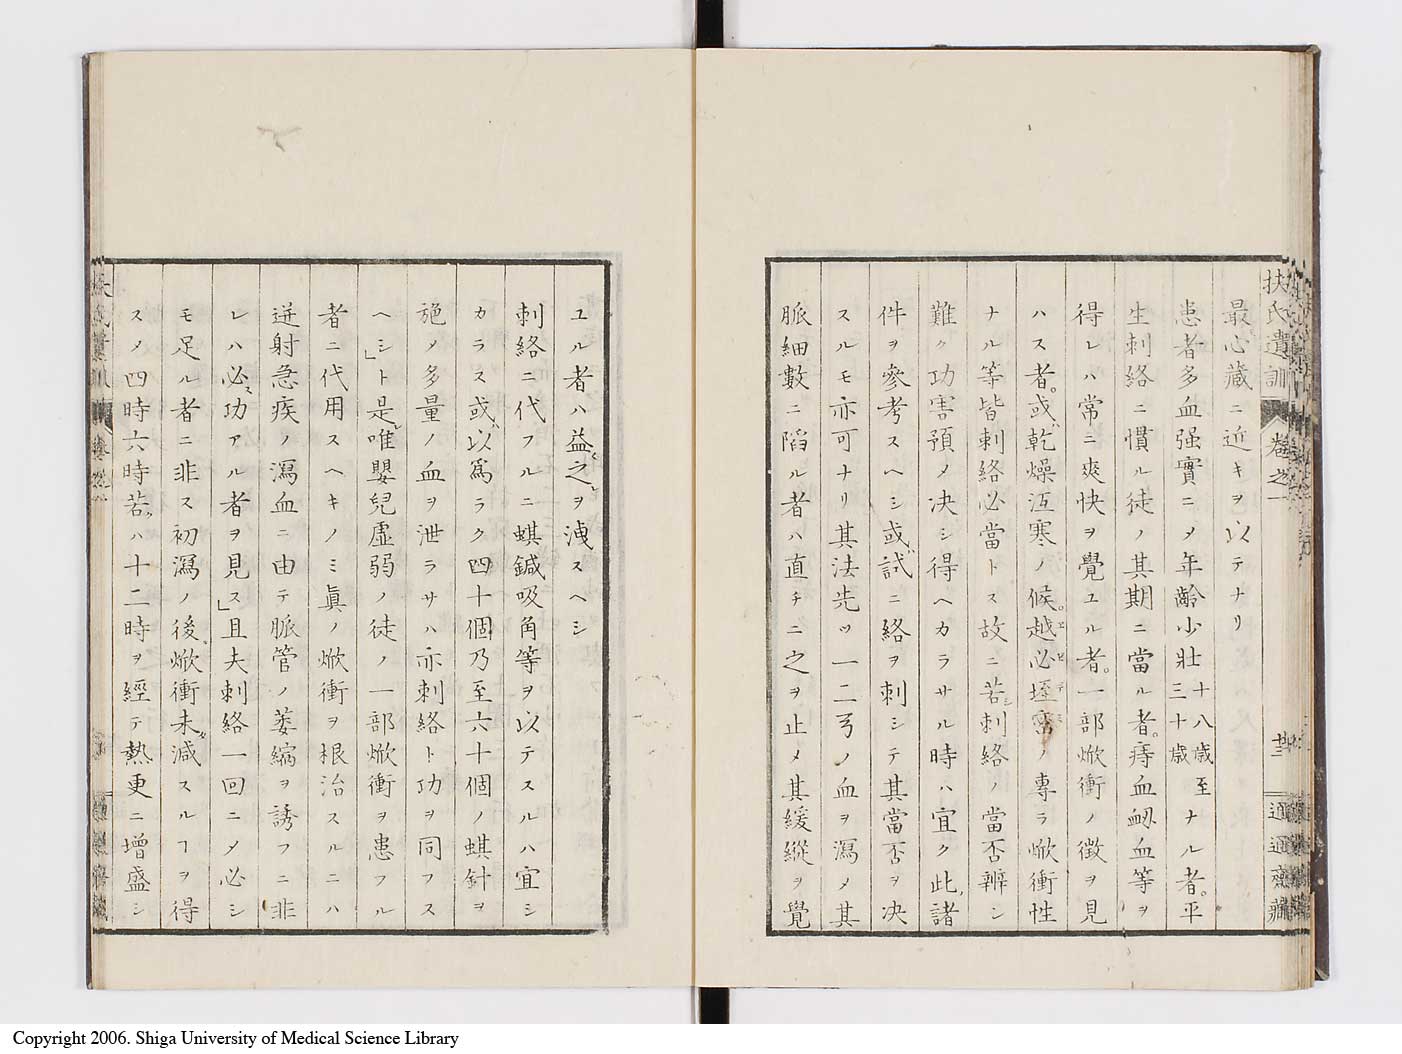 扶氏遺訓 卷之一 廿三 通通齋藏
最心藏ニ近キヲ以テナリ
患者多血强實ニメ年齡少壯十八歳至三十歳ナル者。平
生刺絡ニ慣ル徒ノ其期ニ當ル者。痔血衂血等ヲ
得レハ常ニ爽快ヲ覺ユル者。一部焮衝ノ徴ヲ見
ハス者。或ハ乾燥冱寒ノ候。越必垤密ノ專ラ焮衝性
ナル等皆刺絡必當トス故ニ若シ刺絡ノ當否辨シ
難ク功害預メ決シ得ヘカラサル時ハ宜ク此諸
件ヲ參考スヘシ或ハ試ニ絡ヲ刺シテ其當否ヲ决
スルモ亦可ナリ其法先ツ一二弓ノ血ヲ瀉メ其
脈細數ニ䧟ル者ハ直チニ之ヲ止メ其緩縱ヲ覺
ユル者ハ益之ヲ洩スヘシ
刺絡ニ代フルニ蜞鍼吸角等ヲ以テスルハ宜シ
カラス或以爲ラク四十個乃至六十個ノ蜞針ヲ
施メ多量ノ血ヲ泄ラサハ亦刺絡ト功ヲ同フス
ヘシ」ト是レ唯嬰兒虛弱ノ徒ノ一部焮衝ヲ患フル
者ニ代用スヘキノミ眞ノ焮衝ヲ根治スルニハ
迸射急疾ノ瀉血ニ由テ脈管ノ萎縮ヲ誘フニ非
レハ必ス功アル者ヲ見ス」且夫刺絡一回ニメ必シ
モ足ル者ニ非ス初瀉ノ後、焮衝未タ減スルヿヲ得
スメ四時六時若ハ十二時ヲ經テ熱更ニ增盛シ
Copyright 2006. Shiga University of Medical Science Library